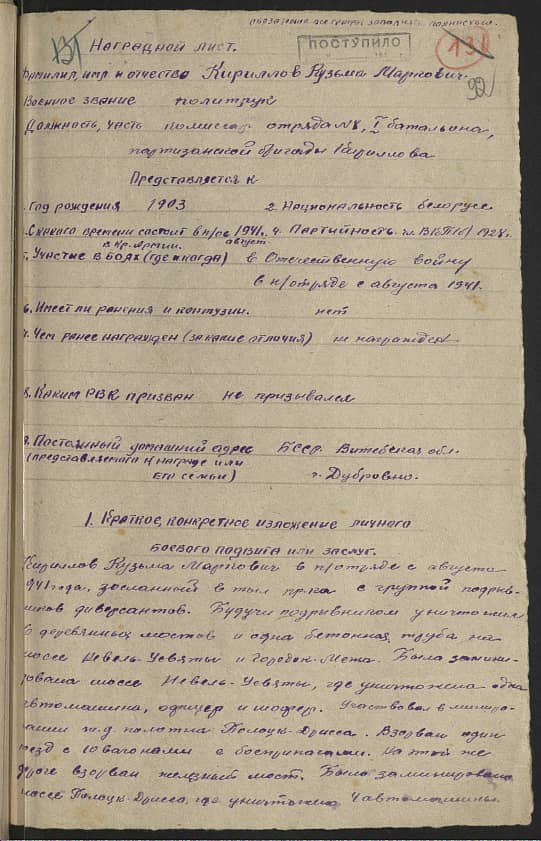 НАГРАДНОЙ ЛИСТ.
ПОСТУПИЛО
131
138
92
Фамилия, имя и отчество Кириллов Кузьма Маркович.
Военное звание политрук
Должность, часть комиссар отряда №8, I батальона,
партизанской бригады Кириллова
Представляется к
1. Год рождения 1903 2. Национальность белорусс
3. С какого времени состоит в п/от 1941. 4. Партийность чл. ВКП(б) 1928 г.
в Кр. Армии. август
5. Участие в боях (где и когда) в Отечественную войну
в п/отряде с августа 1941.
6. Имеет ли ранения и контузии. нет
7. Чем ранее награжден (за какие отличия) не награжден
8. Каким РВК призван не призывался
9. Постоянный домашний адрес БССР. Витебская обл.
(представляемого к награде или
его семьи) г. Дубровно.
1. Краткое, конкретное изложение личного
боевого подвига или заслуг.
Кириллов Кузьма Маркович в п/отряде с августа
1941 года, засланный в тыл пр-ка с группой подрыв-
ников диверсантов. Будучи подрывником уничтожил
6 деревянных мостов и одна бетонная труба на
шоссе Невель-Усвяты и Городок-Межа. Была замини-
рована шоссе Невель-Усвяты, где уничтожена одна
автомашина, офицер и шофер. Участвовал в миниро-
вании ж.д. полотна Полоцк-Дрисса. Взорван один
поезд с 10 вагонами с боеприпасами. На той же
дороге взорван железный мост. Было заминировано
шоссе Полоцк-Дрисса, где уничтожено 4 автомашины